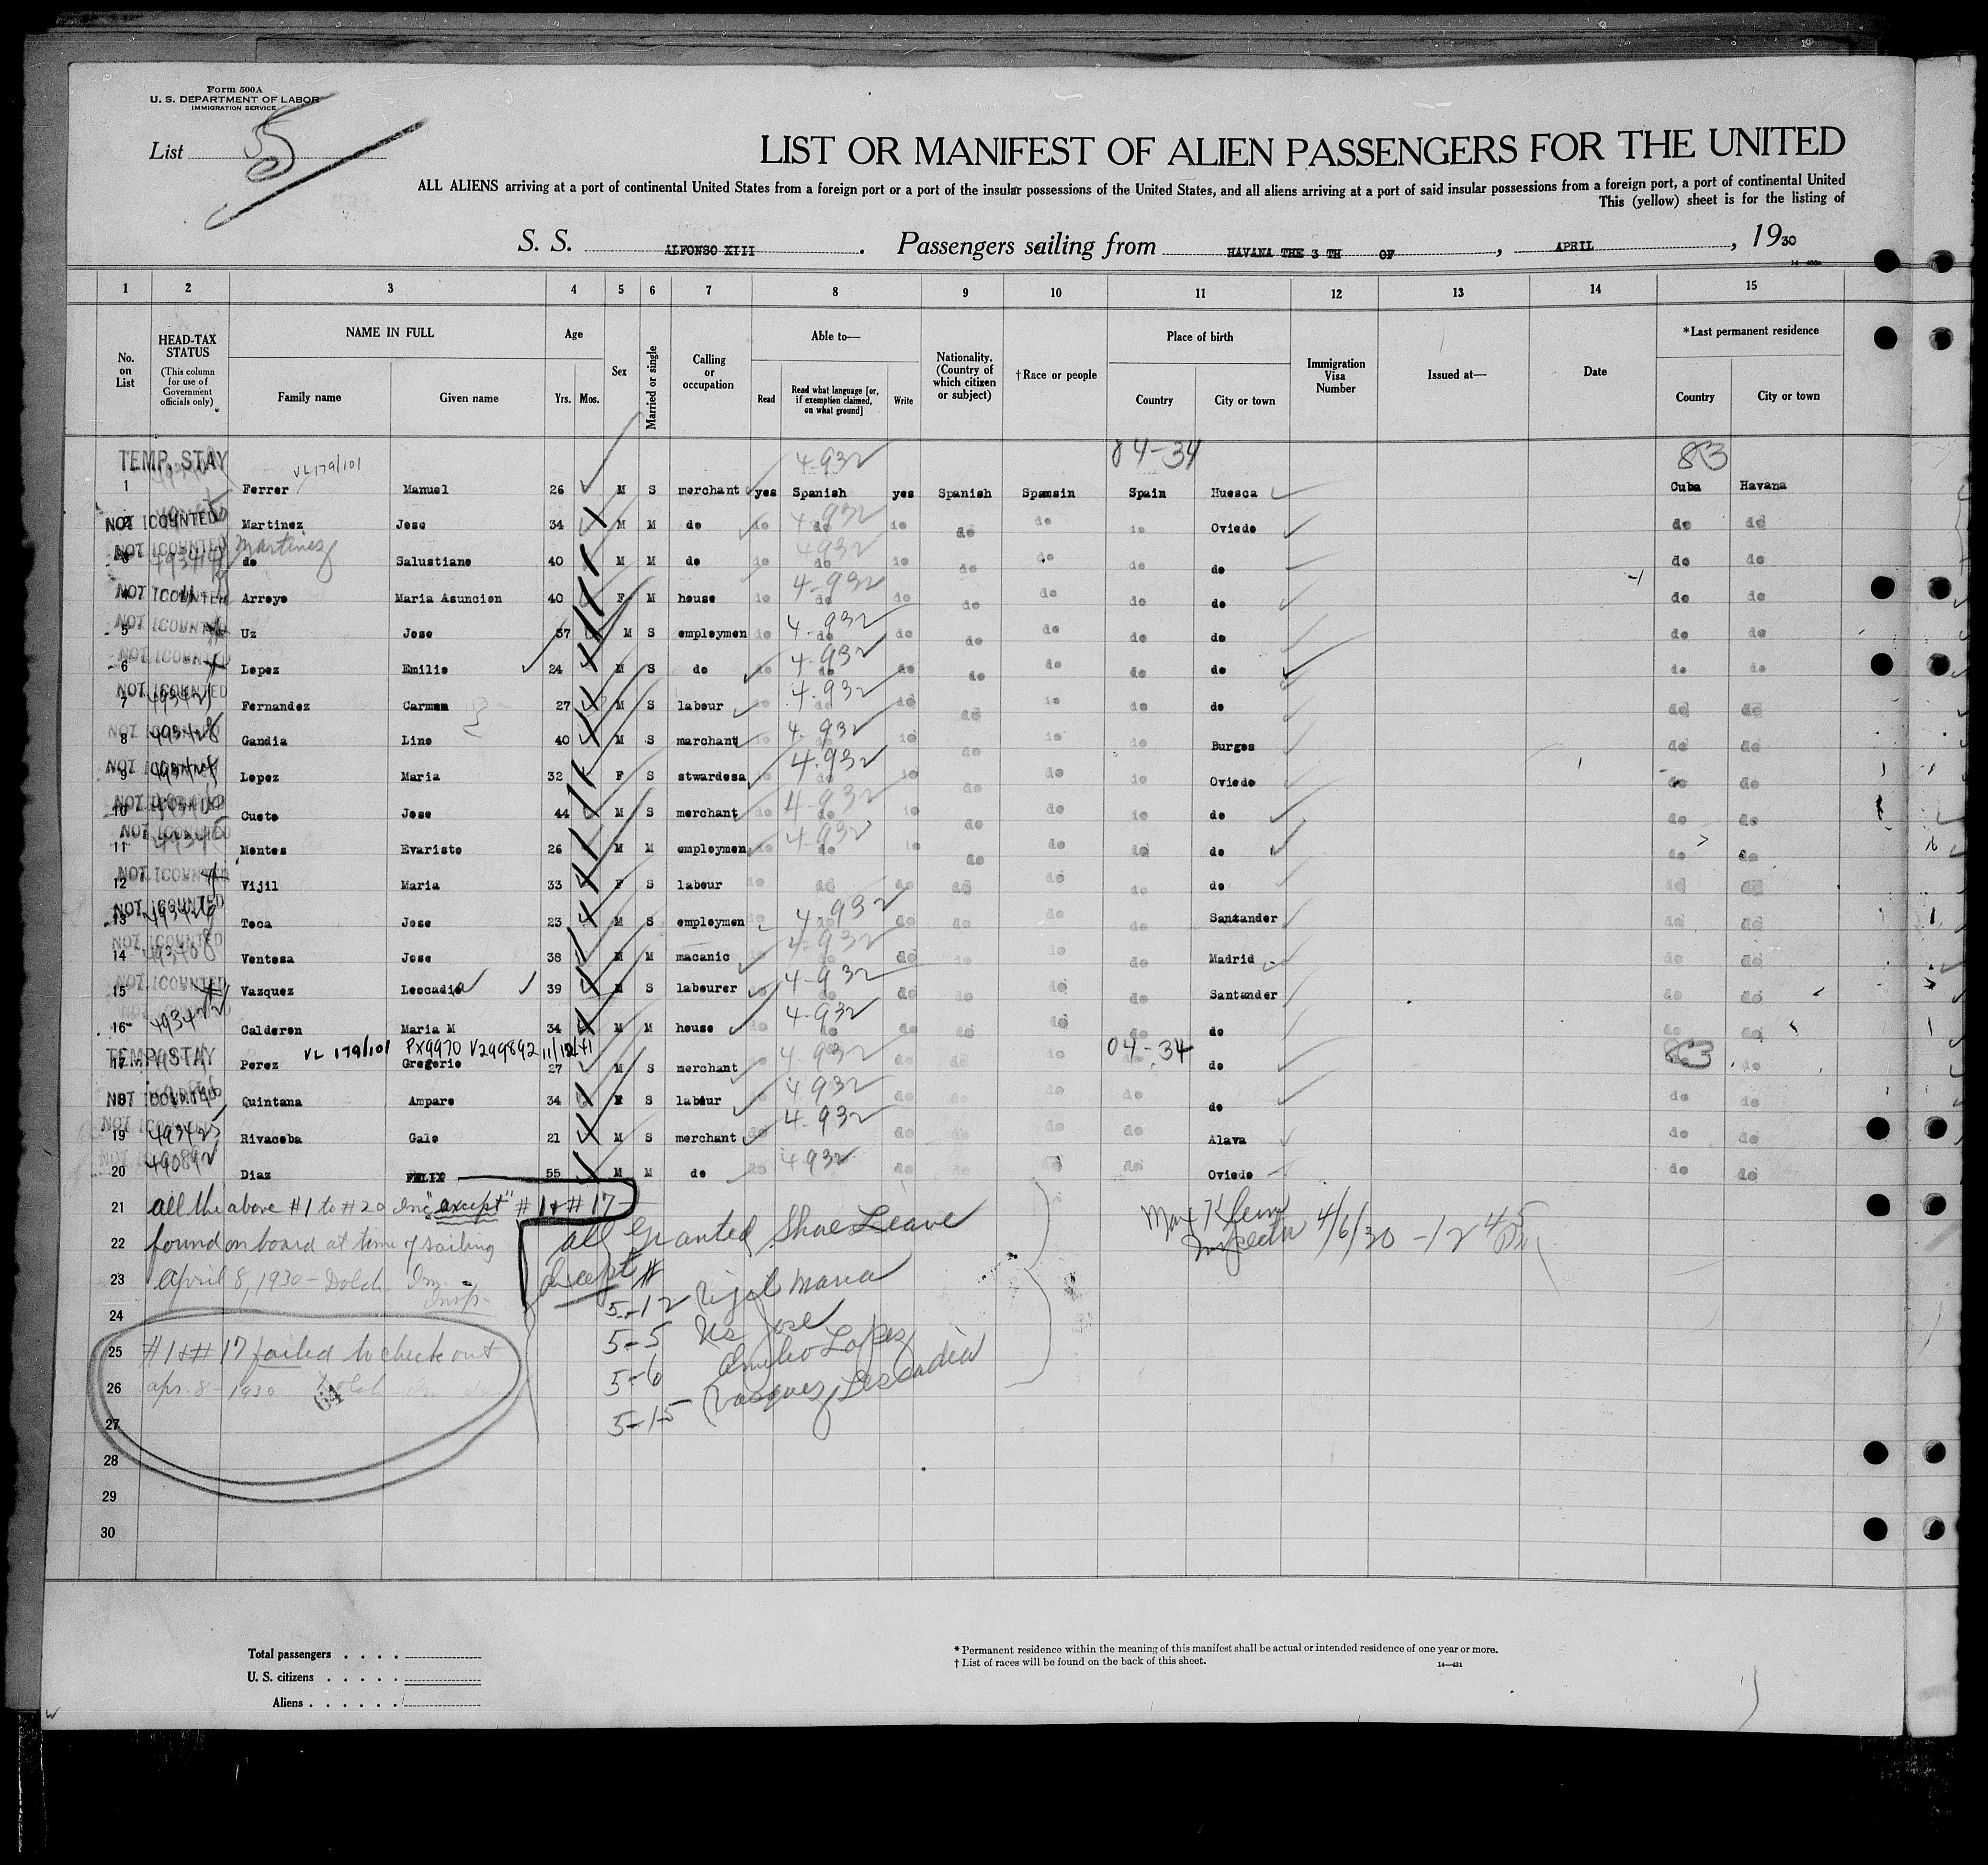 Form 500A
U. S. DEPARTMENT OF LABOR
IMMIGRATION SERVICE
List 5
LIST OR MANIFEST OF ALIEN PASSENGERS FOR THE UNITED
ALL ALIENS arriving at a port of continental United States from a foreign port or a port of the insular possessions of the United States, and all aliens arriving at a port of said insular possessions from a foreign port, a port of continental United
This (yellow) sheet is for the listing of
S. S. ALFONSO XIII. Passengers sailing from HAVANA THE 3 TH OF, APRIL, 1930
1 2 3 4 5 6 7 8 9 10 11 12 13 14 15
No. on List
HEAD-TAX STATUS (This column for use of Government officials only)
NAME IN FULL
Family name Given name
Age
Yrs. Mos.
Sex
Married or single
Calling or occupation
Able to—
Read Read what language [or, if exemption claimed, on what ground] Write
Nationality. (Country of which citizen or subject)
†Race or people
Place of birth
Country City or town
Immigration Visa Number
Issued at—
Date
*Last permanent residence
Country City or town
TEMP. STAY VL179/101 4-932 04-34 83
1 Ferrer Manuel 26 M S merchant yes Spanish yes Spanish Spansin Spain Huesca Cuba Havana
NOT COUNTED 4-932
2 Martinez Jose 34 M M do do do do do do do Oviedo do do
NOT COUNTED Martinez 4932
3 do Salustiano 40 M M do do do do do do do do do do
NOT COUNTED 4-932
4 Arroyo Maria Asuncion 40 F M house do do do do do do do do do
NOT COUNTED 4-932
5 Uz Jose 37 M S employmen do do do do do do do do do
NOT COUNTED 4-932
6 Lopez Emilio 24 M S do do do do do do do do do do
NOT COUNTED 4-932
7 Fernandez Carmen 27 M S labour do do do do do do do do do
NOT COUNTED 4-932
8 Gandia Lino 40 M S marchant do do do do do do Burgos do do
NOT COUNTED 4-932
9 Lopez Maria 32 F S stwardesa do do do do do do Oviedo do do
NOT COUNTED 4-932
10 Cueto Jose 44 M S merchant do do do do do do do do do
NOT COUNTED 4-932
11 Montes Evaristo 26 M M employmen do do do do do do do do do
NOT COUNTED
12 Vijil Maria 33 F S labour do do do do do do do do do
NOT COUNTED 4-932
13 Toca Jose 23 M S employmen do do do do do do Santander do do
NOT COUNTED 4-932
14 Ventosa Jose 38 M M macanic do do do do do do Madrid do do
NOT COUNTED 4-932
15 Vazquez Leocadia 39 M S labourer do do do do do do Santander do do
493422 4-932
16 Calderon Maria M 34 M M house do do do do do do do do do
TEMP. STAY VL 179/101 PX9970 V299892 11/12/41 4-932 04-34 83
17 Perez Gregorio 27 M S merchant do do do do do do do do
NOT COUNTED 4-932
18 Quintana Amparo 34 F S labour do do do do do do do do do
NOT COUNTED 493425 4-932
19 Rivacoba Galo 21 M S merchant do do do do do Alava do do
490892 4932
20 Diaz FELIX 55 M M do do do do do do Oviedo do do
21 all the above #1 to #20 Inc "except" #1 & #17
22 found on board at time of sailing
23 April 8, 1930 - Dolch Im. Insp.
24
25 #1 & #17 failed to check out
26 apr. 8 - 1930 Dolch
27
28
29
30
all Granted Shoe Leave
Except #
5-12 Vijil Maria
5-5 Uz Jose
5-6 Emilio Lopez
5-15 Vasquez Leocadia
Max Klein
Inspector 4/6/30 - 12 45 PM
Total passengers
U. S. citizens
Aliens
* Permanent residence within the meaning of this manifest shall be actual or intended residence of one year or more.
† List of races will be found on the back of this sheet.
14—431